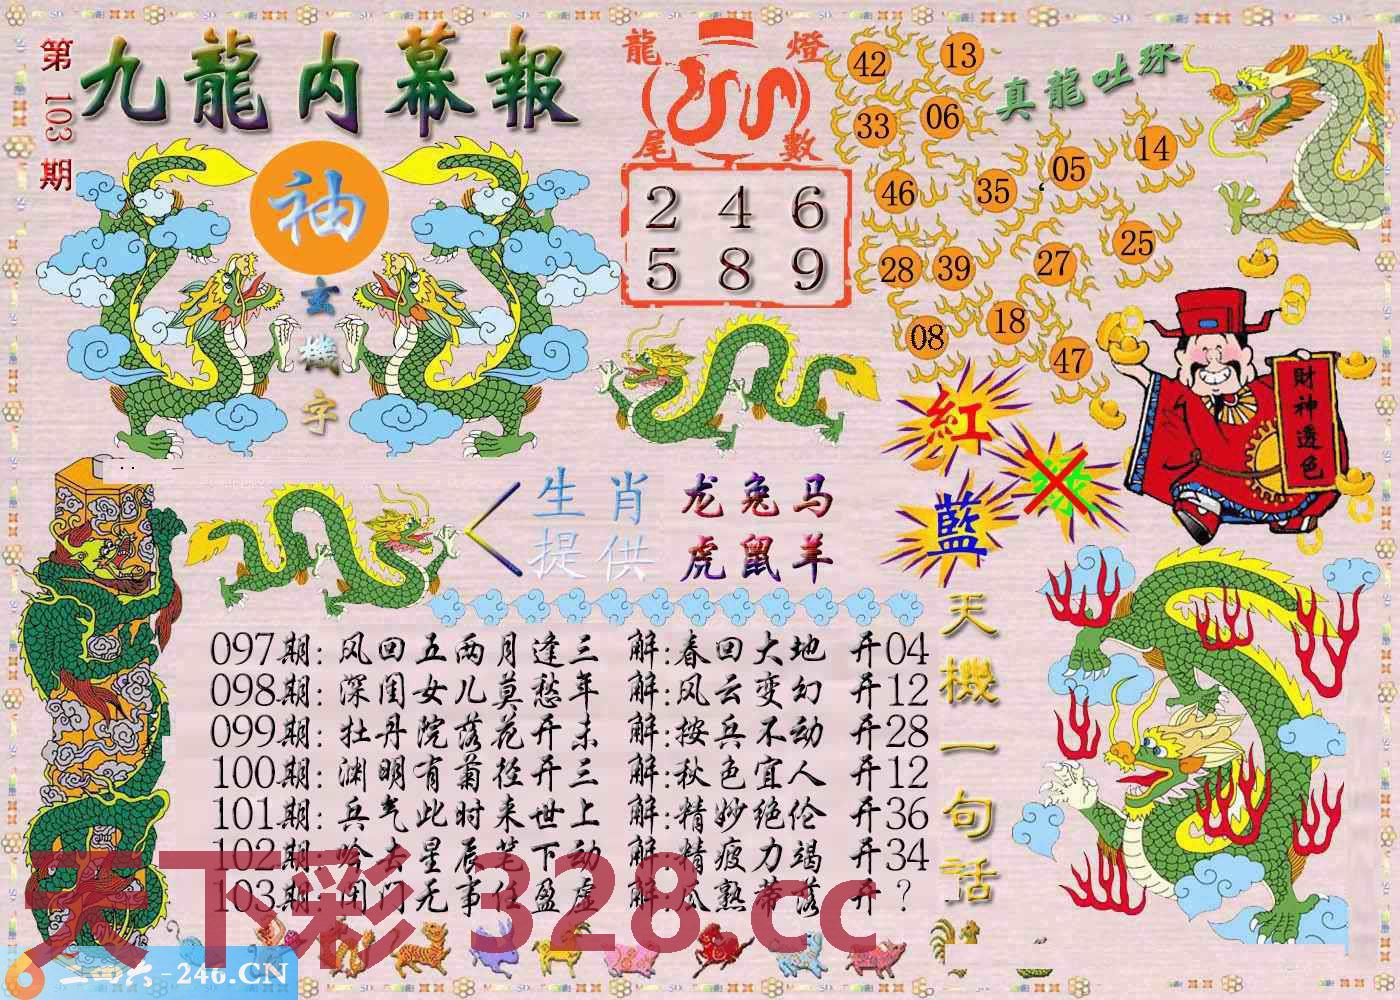 第103期
九龍内幕報
袖
玄機字
龍燈
尾數
2 4 6
5 8 9
真龍吐珠
42 13
33 06
46 35 05 14
28 39 27 25
08 18 47
財神透色
紅
藍
生肖 龙兔马
提供 虎鼠羊
097期:风回五两月逢三 解:春回大地 开04
098期:深闺女儿莫愁年 解:风云变幻 开12
099期:牡丹院落花开未 解:按兵不动 开28
100期:渊明有菊径开三 解:秋色宜人 开12
101期:兵气此时来世上 解:精妙绝伦 开36
102期:吟去星辰笔下动 解:精疲力竭 开34
103期:闭门无事任盈虚 解:瓜熟蒂落 开？
天機一句話
天下彩 328.cc
二四六-246.CN